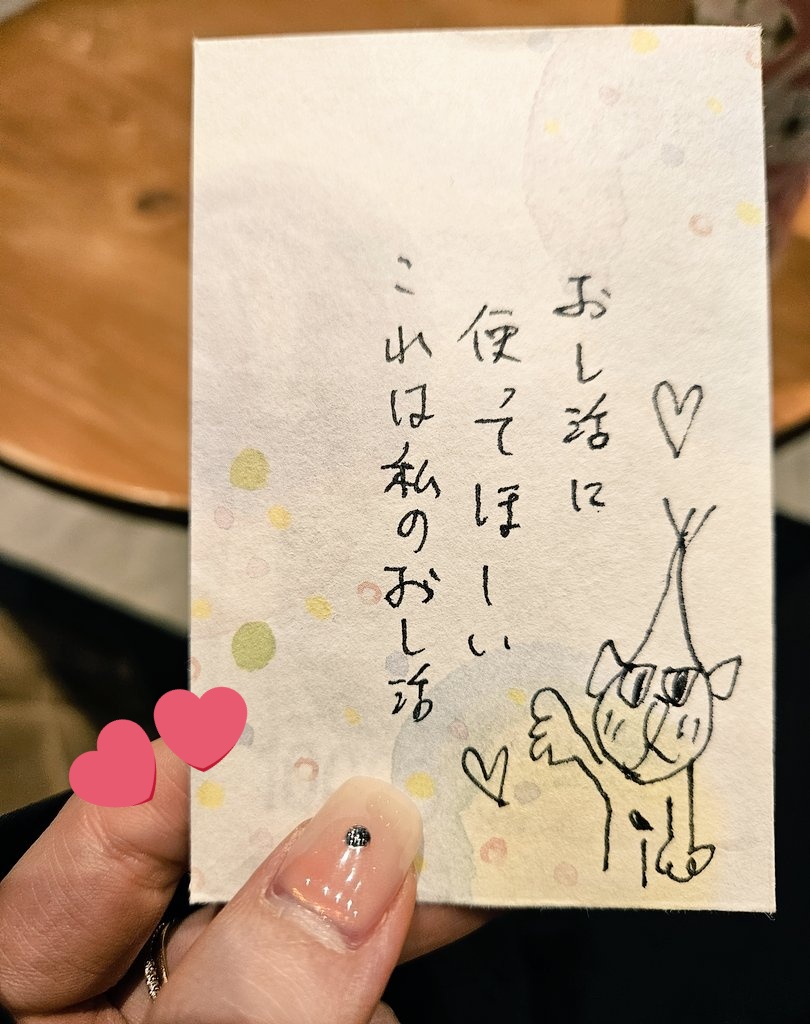 おし活に
使ってほしい
これは私のおし活